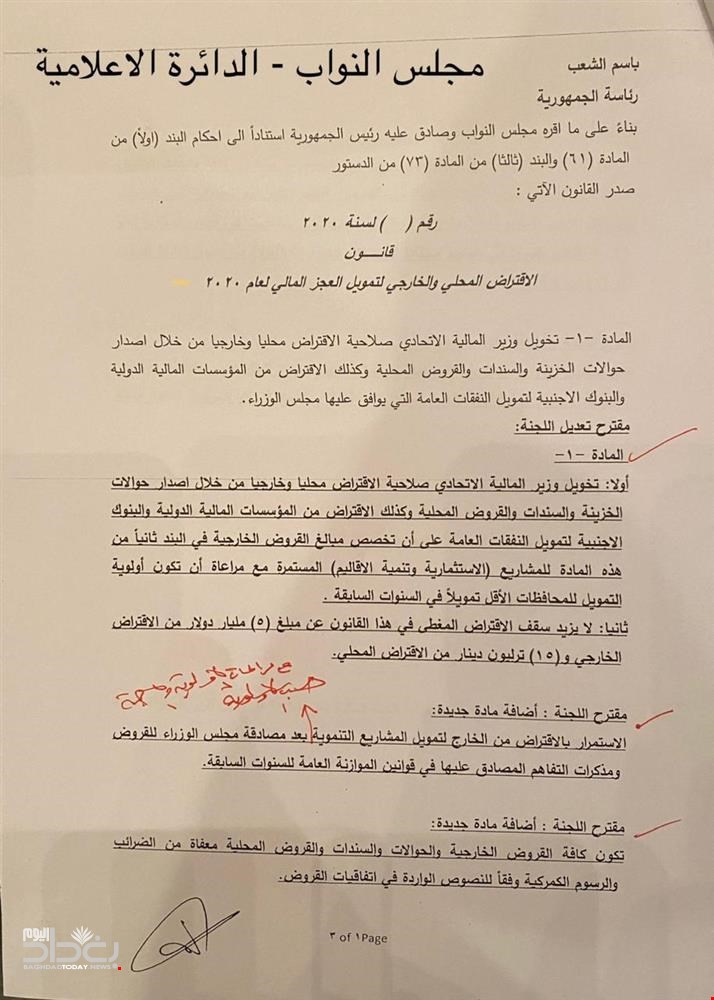 مجلس النواب - الدائرة الاعلامية
باسم الشعب
رئاسة الجمهورية
بناءً على ما اقره مجلس النواب وصادق عليه رئيس الجمهورية استناداً الى احكام البند (اولاً) من
المادة (٦١) والبند (ثالثا) من المادة (٧٣) من الدستور
صدر القانون الآتي :
رقم ( ) لسنة ٢٠٢٠
قانـــون
الاقتراض المحلي والخارجي لتمويل العجز المالي لعام ٢٠٢٠
المادة -١- تخويل وزير المالية الاتحادي صلاحية الاقتراض محليا وخارجيا من خلال اصدار
حوالات الخزينة والسندات والقروض المحلية وكذلك الاقتراض من المؤسسات المالية الدولية
والبنوك الاجنبية لتمويل النفقات العامة التي يوافق عليها مجلس الوزراء.
مقترح تعديل اللجنة:
المادة -١-
أولا: تخويل وزير المالية الاتحادي صلاحية الاقتراض محليا وخارجيا من خلال اصدار حوالات
الخزينة والسندات والقروض المحلية وكذلك الاقتراض من المؤسسات المالية الدولية والبنوك
الاجنبية لتمويل النفقات العامة على أن تخصص مبالغ القروض الخارجية في البند ثانياً من
هذه المادة للمشاريع (الاستثمارية وتنمية الاقاليم) المستمرة مع مراعاة أن تكون أولوية
التمويل للمحافظات الأقل تمويلاً في السنوات السابقة .
ثانيا: لا يزيد سقف الاقتراض المغطى في هذا القانون عن مبلغ (٥) مليار دولار من الاقتراض
الخارجي و(١٥) ترليون دينار من الاقتراض المحلي.
مقترح اللجنة : أضافة مادة جديدة:
الاستمرار بالاقتراض من الخارج لتمويل المشاريع التنموية بعد مصادقة مجلس الوزراء للقروض
ومذكرات التفاهم المصادق عليها في قوانين الموازنة العامة للسنوات السابقة.
مقترح اللجنة : أضافة مادة جديدة:
تكون كافة القروض الخارجية والحوالات والسندات والقروض المحلية معفاة من الضرائب
والرسوم الكمركية وفقاً للنصوص الواردة في اتفاقيات القروض.
٣ of ١Page
بغداد اليوم
BAGHDADTODAY.NEWS